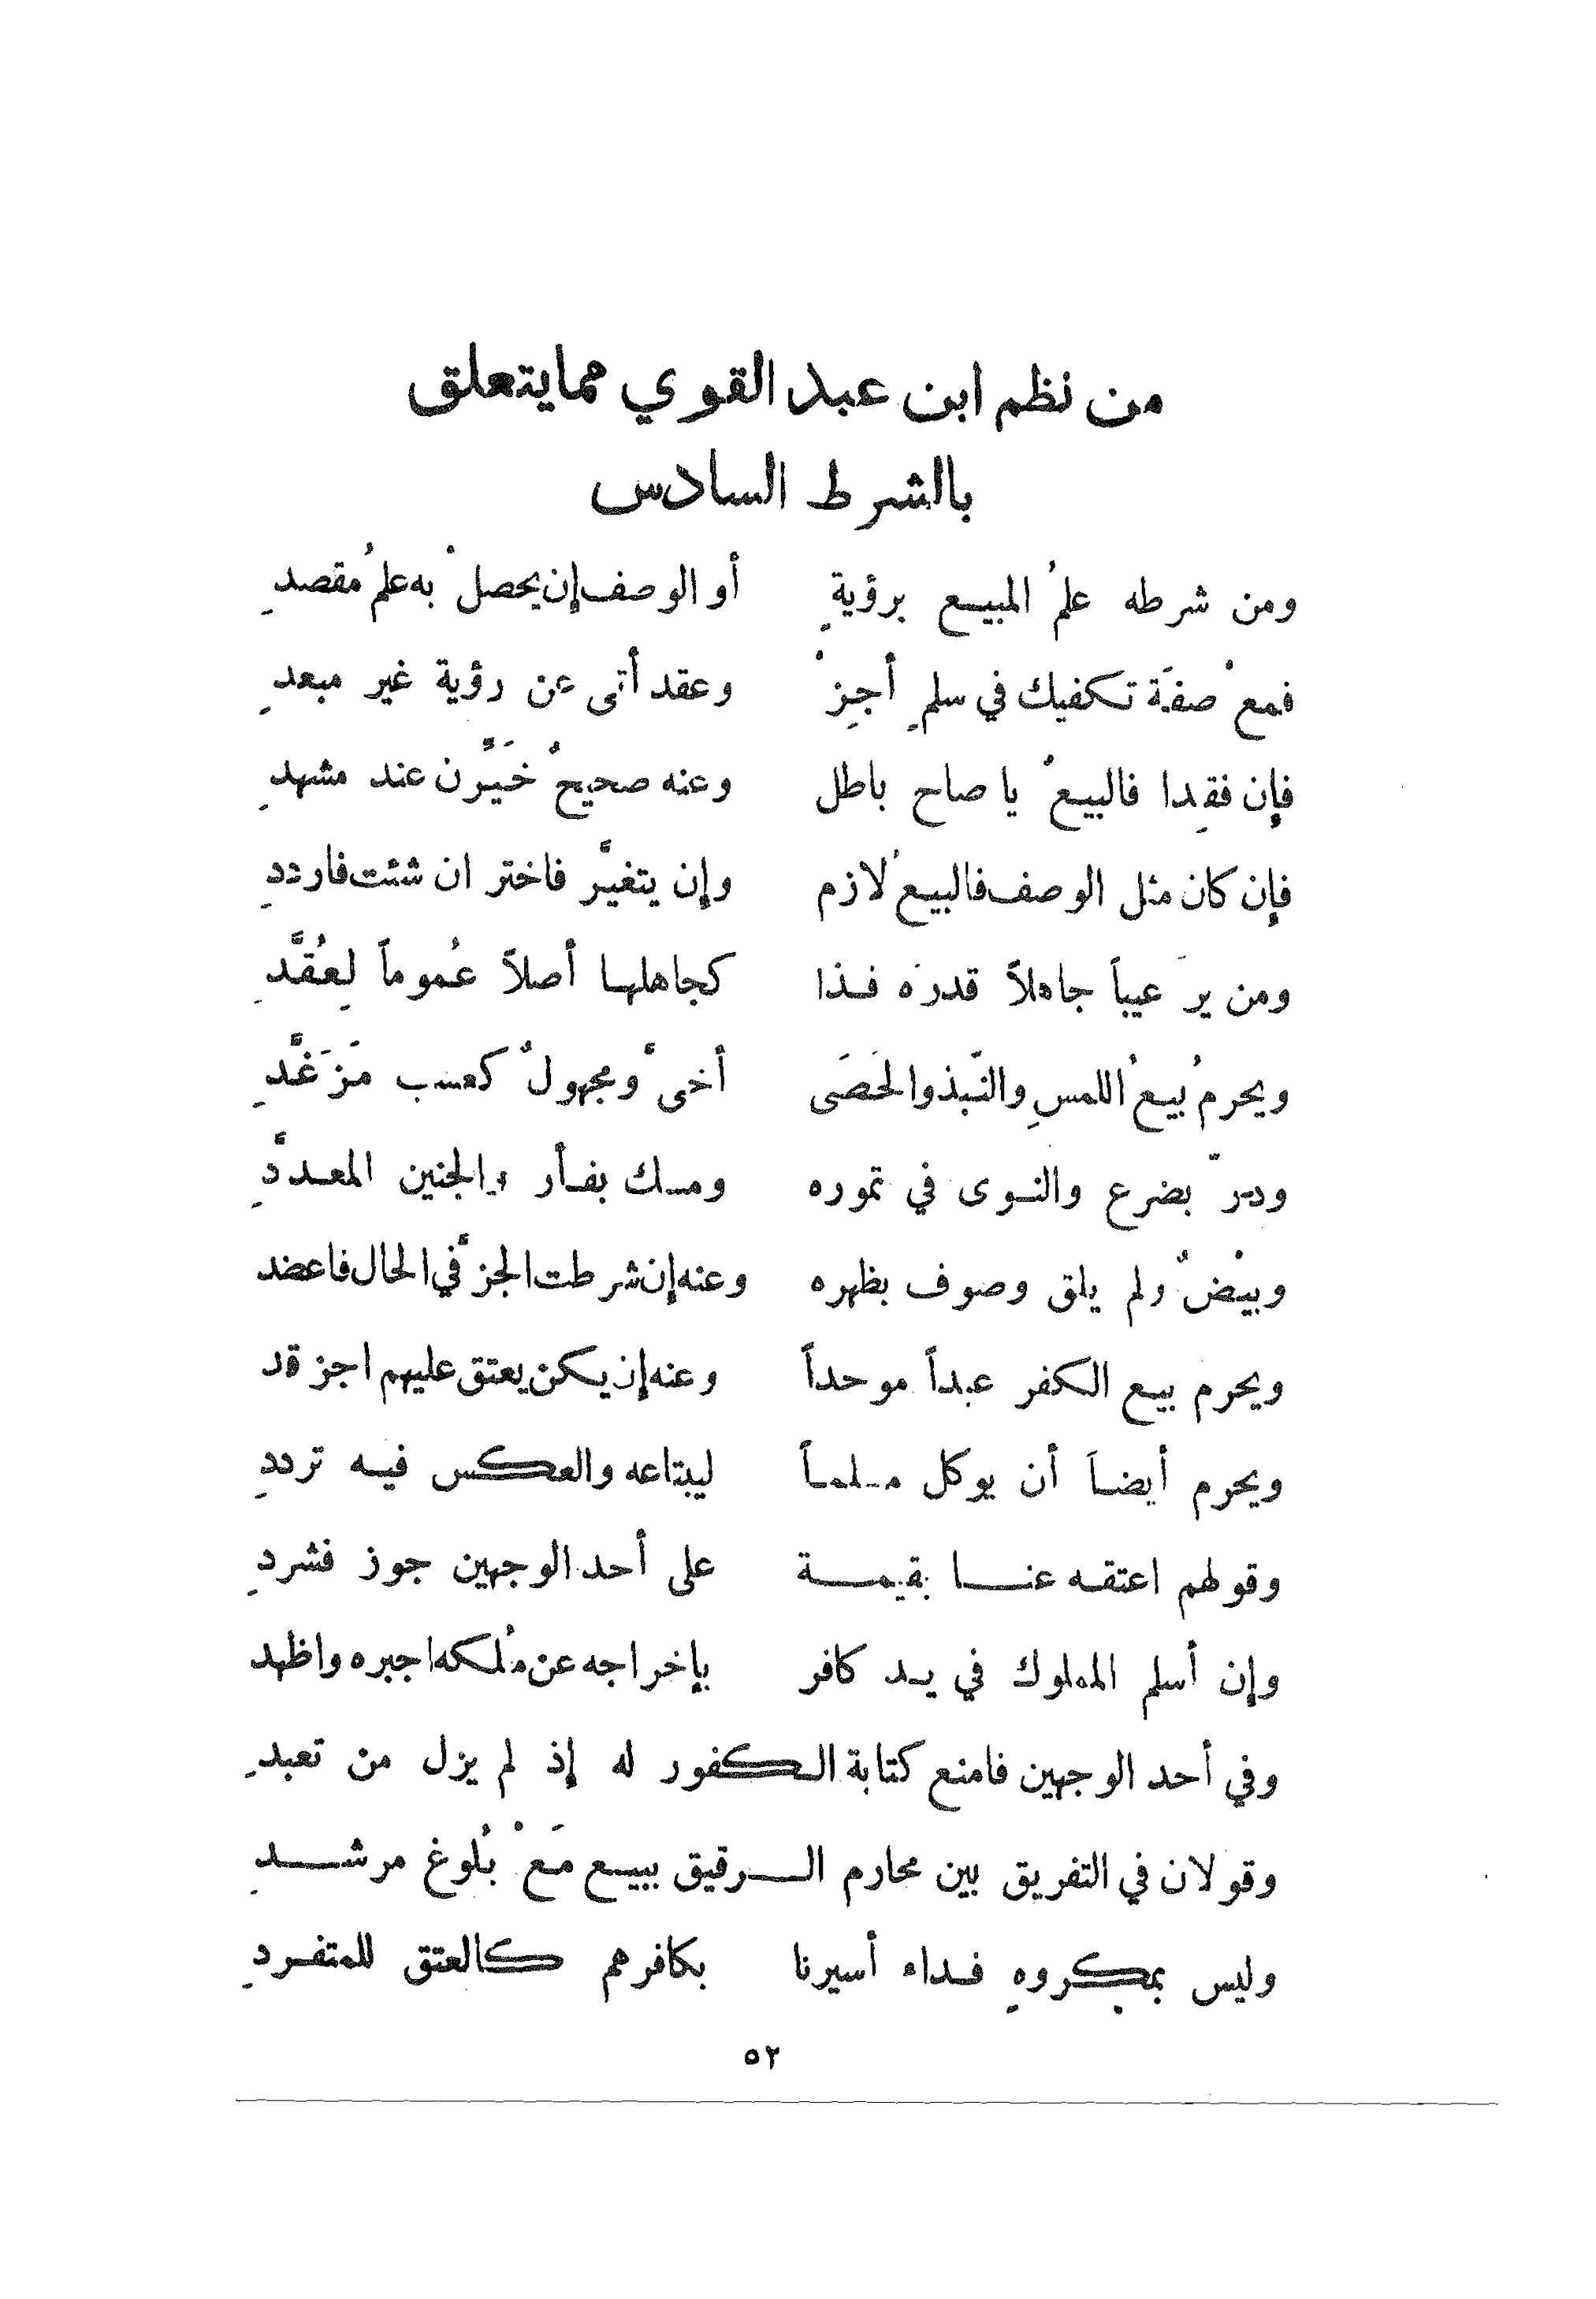 من نظم ابن عبد القوي مما يتعلق
بالشرط السادس
ومن شرطه علمُ المبيع برؤيةٍ أو الوصف إن يحصلْ به علمُ مقصدِ
فمعْ صفَة تكفيك في سلمٍ أجِزْ وعقد أتى عن رؤية غير مبعدِ
فإن فقِدا فالبيعُ يا صاح باطل وعنه صحيحٌ خَيِّرَن عند مشهدِ
فإن كان مثل الوصف فالبيعُ لازم وإن يتغيَّر فاختر ان شئت فارددِ
ومن يرَ عيباً جاهلاً قدرَه فذا كجاهلها أصلاً عُموماً لِعُقَّدِ
ويحرمُ بيعُ اللمسِ والنَّبذ والحَصَى أخىَّ ومجهولٌ كعسب مَزَغَّدِ
ودرّ بضرع والنوى في تموره ومسك بفأر والجنين المعددَّ
وبيْضٌ ولم يلق وصوف بظهره وعنه إن شرطت الجزَّ في الحال فاعضد
ويحرم بيع الكفر عبداً موحداً وعنه إن يكن يعتق عليهم اجز قد
ويحرم أيضاً أن يوكل مسلماً ليبتاعه والعكس فيه ترددِ
وقولهم اعتقه عنا بقيمة على أحد الوجهين جوز فشردِ
وإن أسلم المملوك في يد كافر بإخراجه عن مُلكه اجبره واظهد
وفي أحد الوجهين فامنع كتابة الكفور له إذ لم يزل من تعبدِ
وقولان في التفريق بين محارم الرقيق ببيع مَعْ بُلوغ مرشدِ
وليس بمكروهٍ فداء أسيرنا بكافرهم كالعتق للمتفردِ
٥٢